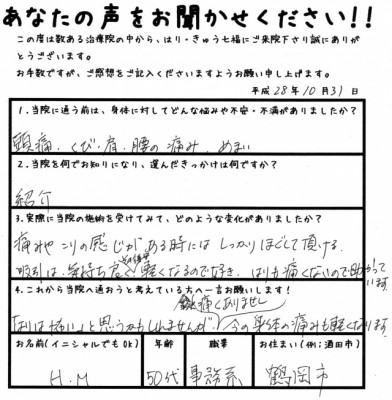 あなたの声をお聞かせください!!
この度は数ある治療院の中から、はり・きゅう七福にご来院下さり誠にありが
とうございます。
お手数ですが、ご感想をご記入くださいますようお願い申し上げます。
平成 28年 10月 31日
1.当院に通う前は、身体に対してどんな悩みや不安・不満がありましたか?
頭痛、くび・肩・腰の痛み、めまい
2.当院を何でお知りになり、選んだきっかけは何ですか?
紹介
3.実際に当院の施術を受けてみて、どのような変化がありましたか?
痛みやこりの感じがある時にはしっかりほぐして頂ける。
吸引は、気持ち良く その後 軽くなるので好き。はりも痛くないので助かって
います
4.これから当院へ通おうと考えている方へ一言お願いします!
痛くありません
「おはりは怖い」と思うかもしれませんが、今の身体の痛みも軽くなります。
お名前(イニシャルでもOK)
年齢
職業
お住まい(例:酒田市)
H.M
50代
事務系
鶴岡市